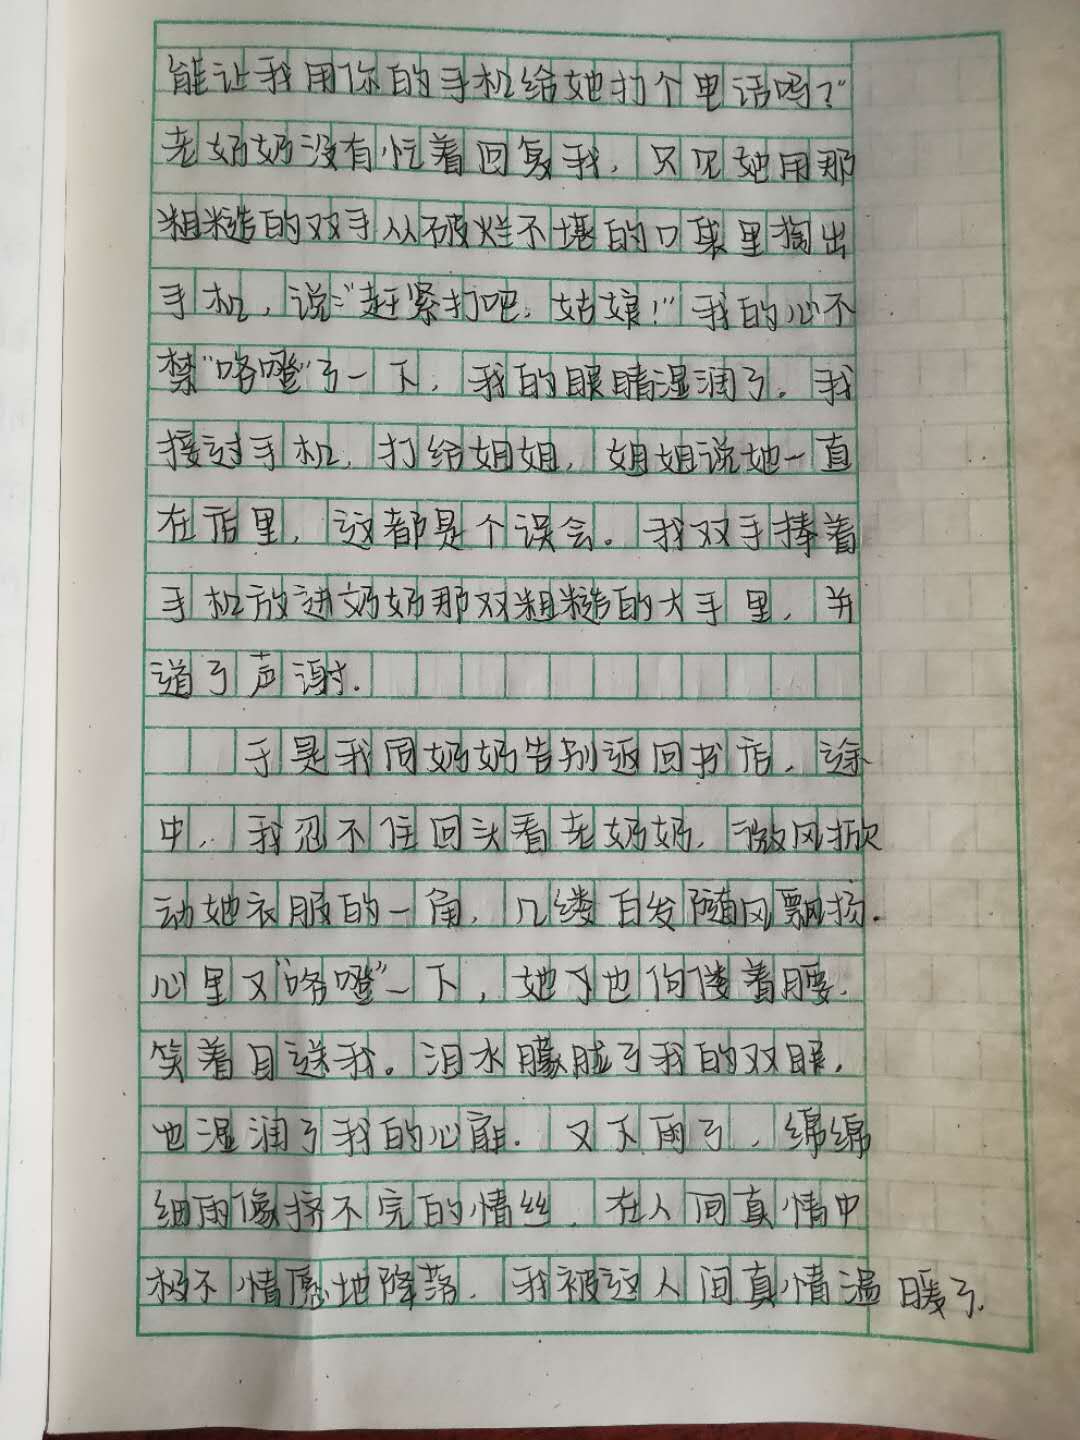 能让我用你的手机给她打个电话吗?"
老奶奶没有忙着回复我,只见她用那
粗糙的双手从破烂不堪的口袋里掏出
手机,说:"赶紧打吧,姑娘!"我的心不
禁"咯噔"了一下,我的眼睛湿润了。我
接过手机,打给姐姐,姐姐说她一直
在店里,这都是个误会。我双手捧着
手机放进奶奶那双粗糙的大手里,并
道了声谢.
于是我同奶奶告别返回书店,途
中,我忍不住回头看老奶奶,微风掀
动她衣服的一角,几缕白发随风飘扬.
心里又"咯噔"一下,她下也佝偻着腰.
笑着目送我。泪水朦胧了我的双眼,
也湿润了我的心扉.又下雨了,绵绵
细雨像挤不完的情丝,在人间真情中
极不情愿地降落.我被这人间真情温暖了.